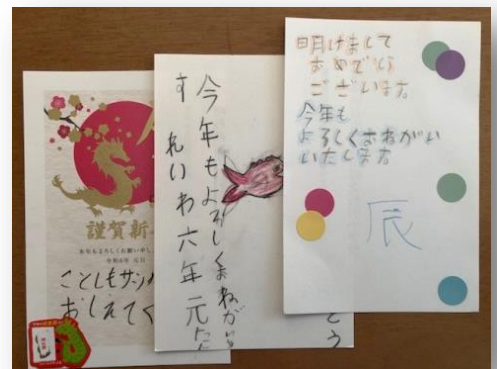 謹賀新
本年もよろしくお願い申し
令和6年 元旦
ことしもサッカ
おしえてく
今年もよろしくおねがい
す
れいわ六年元た
とう
明けまして
おめでとう
ございます
今年も
よろしくおねがい
いたします
辰